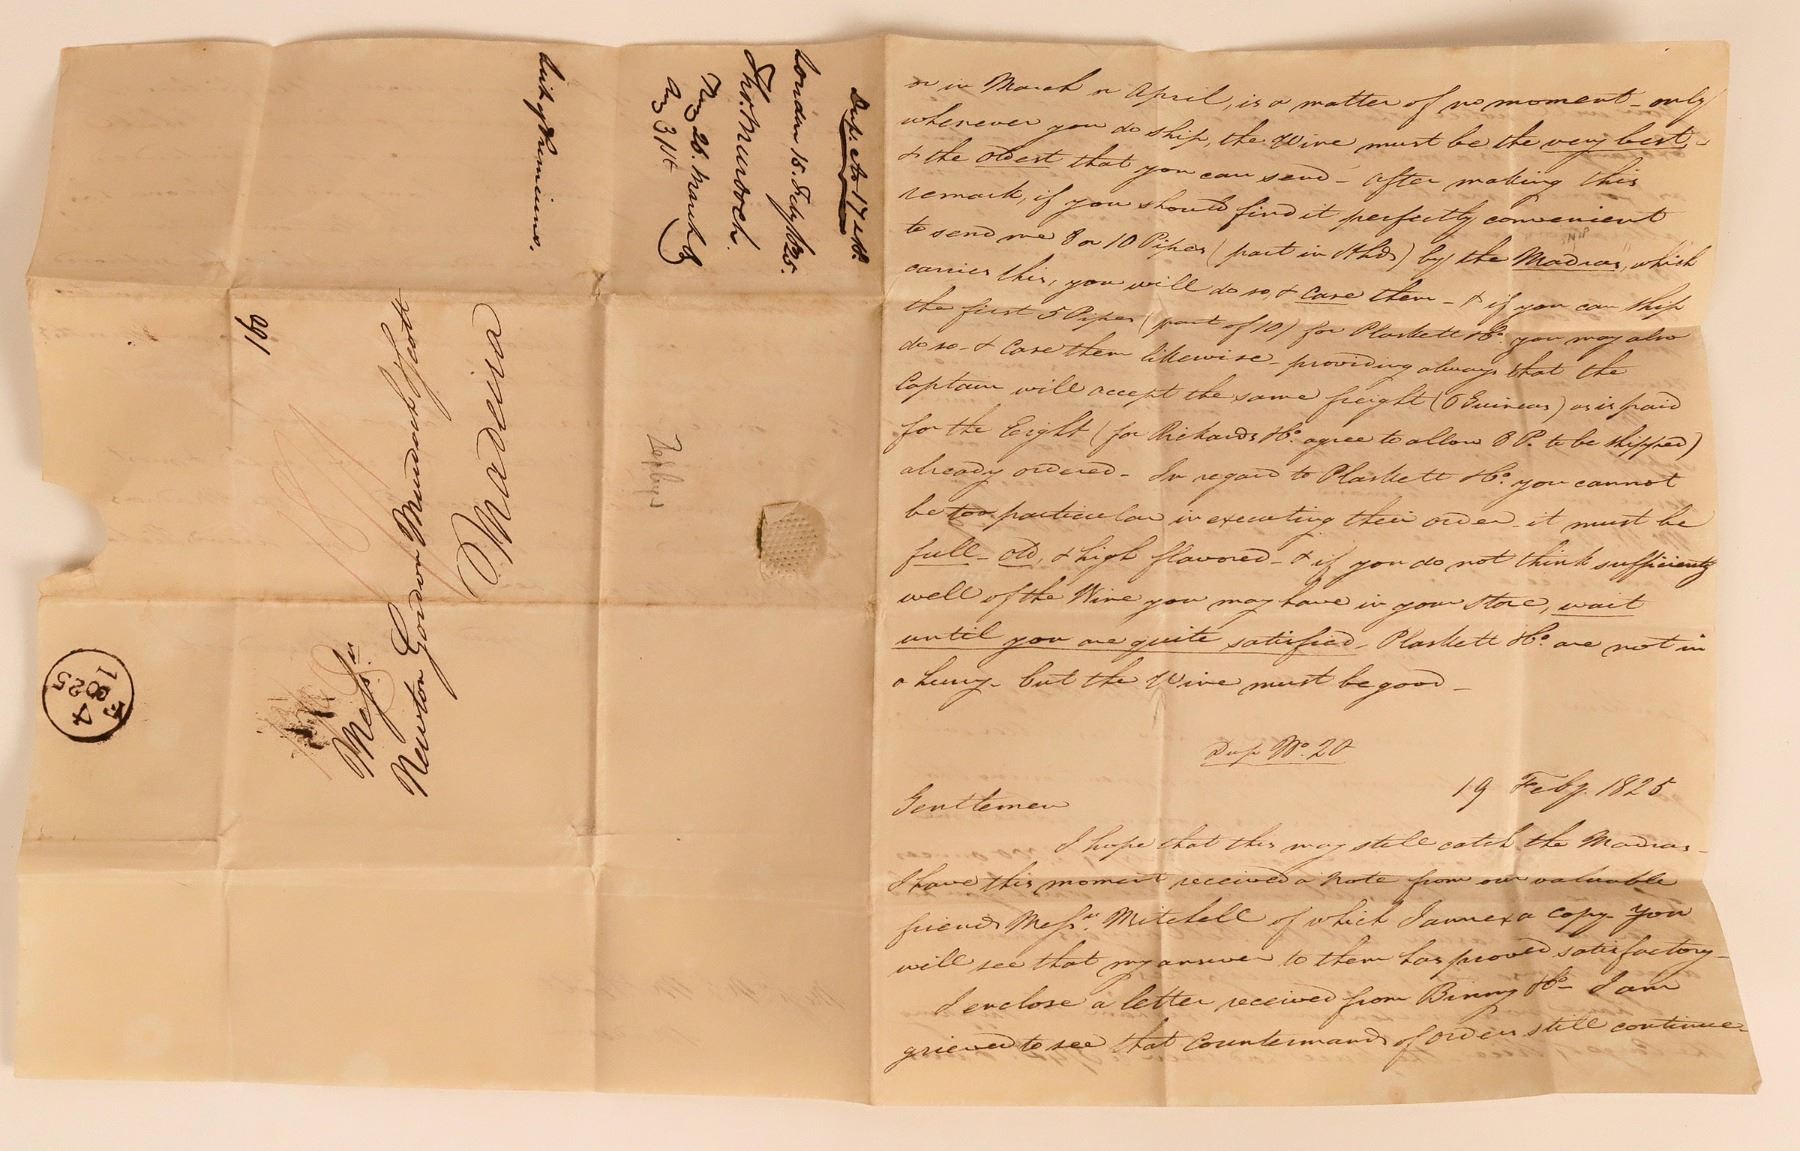 or in March or April, is a matter of no moment - only
whenever you do ship, the Wine must be the very best,
& the oldest that you can send - after making this
remark, if you should find it perfectly convenient
to send me 8 or 10 Pipes (part in Hhds) by the Madras, which
carries this, you will do so, & case them - & if you can ship
the first 5 Pipes (part of 10) for Plaskett & Co. you may also
do so - & case them likewise - providing always that the
Captain will accept the same freight (6 Guineas) as is paid
for the Eight (for Rickards & Co. agree to allow 8 P. to be shipped)
already ordered - In regard to Plaskett & Co. you cannot
be too particular in executing their order - it must be
full - old, & high flavored - & if you do not think sufficiently
well of the Wine you may have in your Store, wait
until you are quite satisfied - Plaskett & Co. are not in
a hurry - but the Wine must be good -
Dup No. 20
19 Feby. 1825
Gentlemen
I hope that this may still catch the Madras -
I have this moment received a note from our valuable
friends Messrs. Mitchell of which I annex a copy - You
will see that my answer to them has proved satisfactory -
I enclose a letter received from Binny & Co - I am
grieved to see that Countermands of orders still continue
Dup. No 17 & 18.
London 15. Feby 1825.
Thos. Murdoch.
Rec 26. March
Ans 31st
Messrs
Newton Gordon Murdoch & Scott
Madeira
F
4
1825